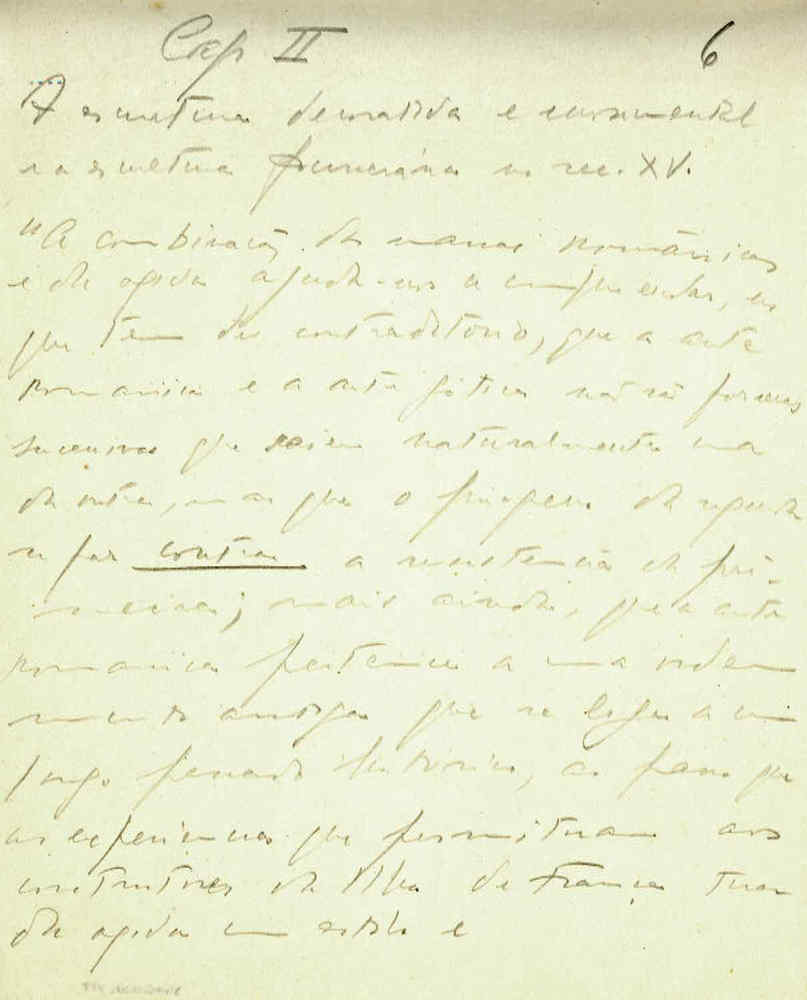 Cap II 6
A escultura decorativa e monumental
e a escultura funerária no sec. XV.
"A combinação da naves românicas
e da ogiva ajuda-nos a compreender, no
que tem de contraditório, que a arte
romanica e a arte gótica não são formas
sucessivas que saiem naturalmente uma
da outra, mas que o progresso da segunda
se faz contra a resistencia da pri-
meira; mais ainda, que a arte
romanica pertence a uma ordem
muito antiga que se liga a um
longo passado historico, ao passo que
as experiencias que permitiram aos
construtores da Ilha de França tirar
da ogiva um estilo e